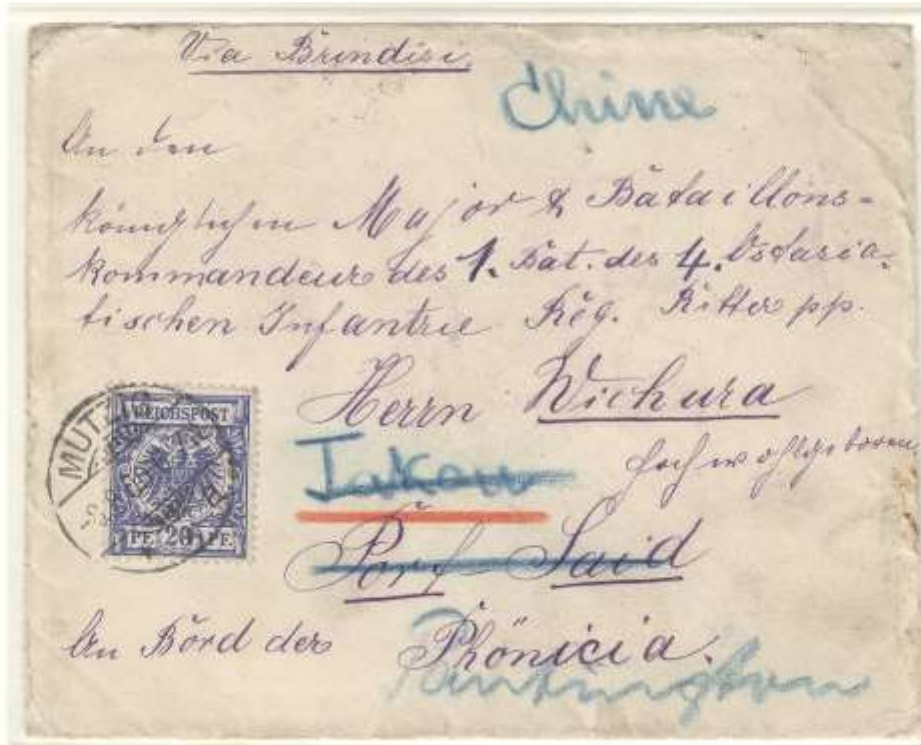 Via Brindisi.
Chine
An den
Königlichen Major & Bataillons-
kommandeur des 1. Bat. des 4. Ostasia-
tischen Infantrie Reg. Ritter pp.
Herrn Wichura
Hochwohlgeboren
Takou
Port Said
An Bord der Phönicia.
REICHSPOST
PF 20 PF